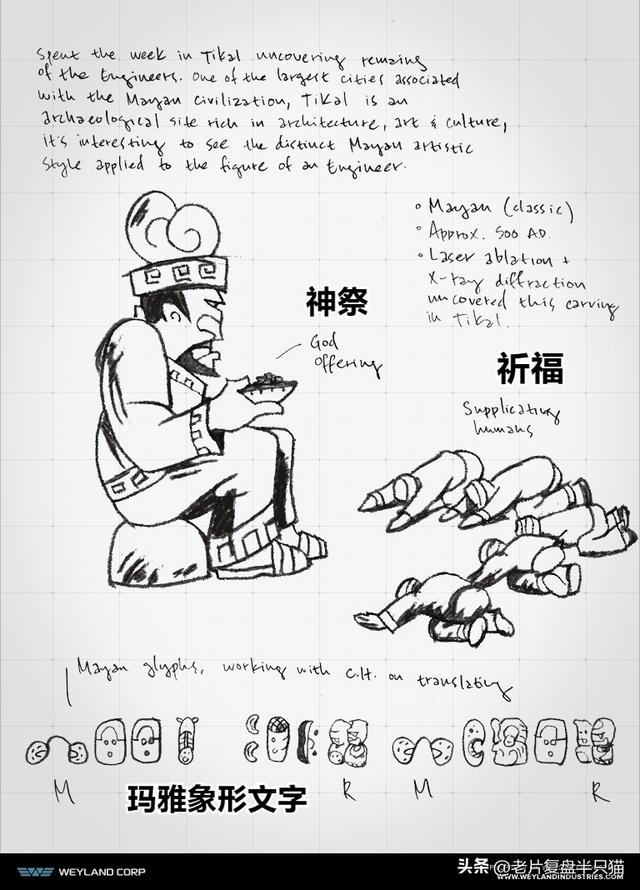 Spent the week in Tikal uncovering remains
of the Engineers. One of the largest cities associated
with the Mayan civilization, Tikal is an
archaeological site rich in architecture, art & culture,
it's interesting to see the distinct Mayan artistic
style applied to the figure of an Engineer.
• Mayan (classic)
• Approx. 500 AD.
• Laser ablation +
X-ray diffraction
uncovered this carving
in Tikal.
神祭
God
offering
祈福
Supplicating
humans
Mayan glyphs, working with C.H. on translating
M
R
M
R
玛雅象形文字
WEYLAND CORP
头条 @老片复盘半只猫
WWW.WEYLANDINDUSTRIES.COM